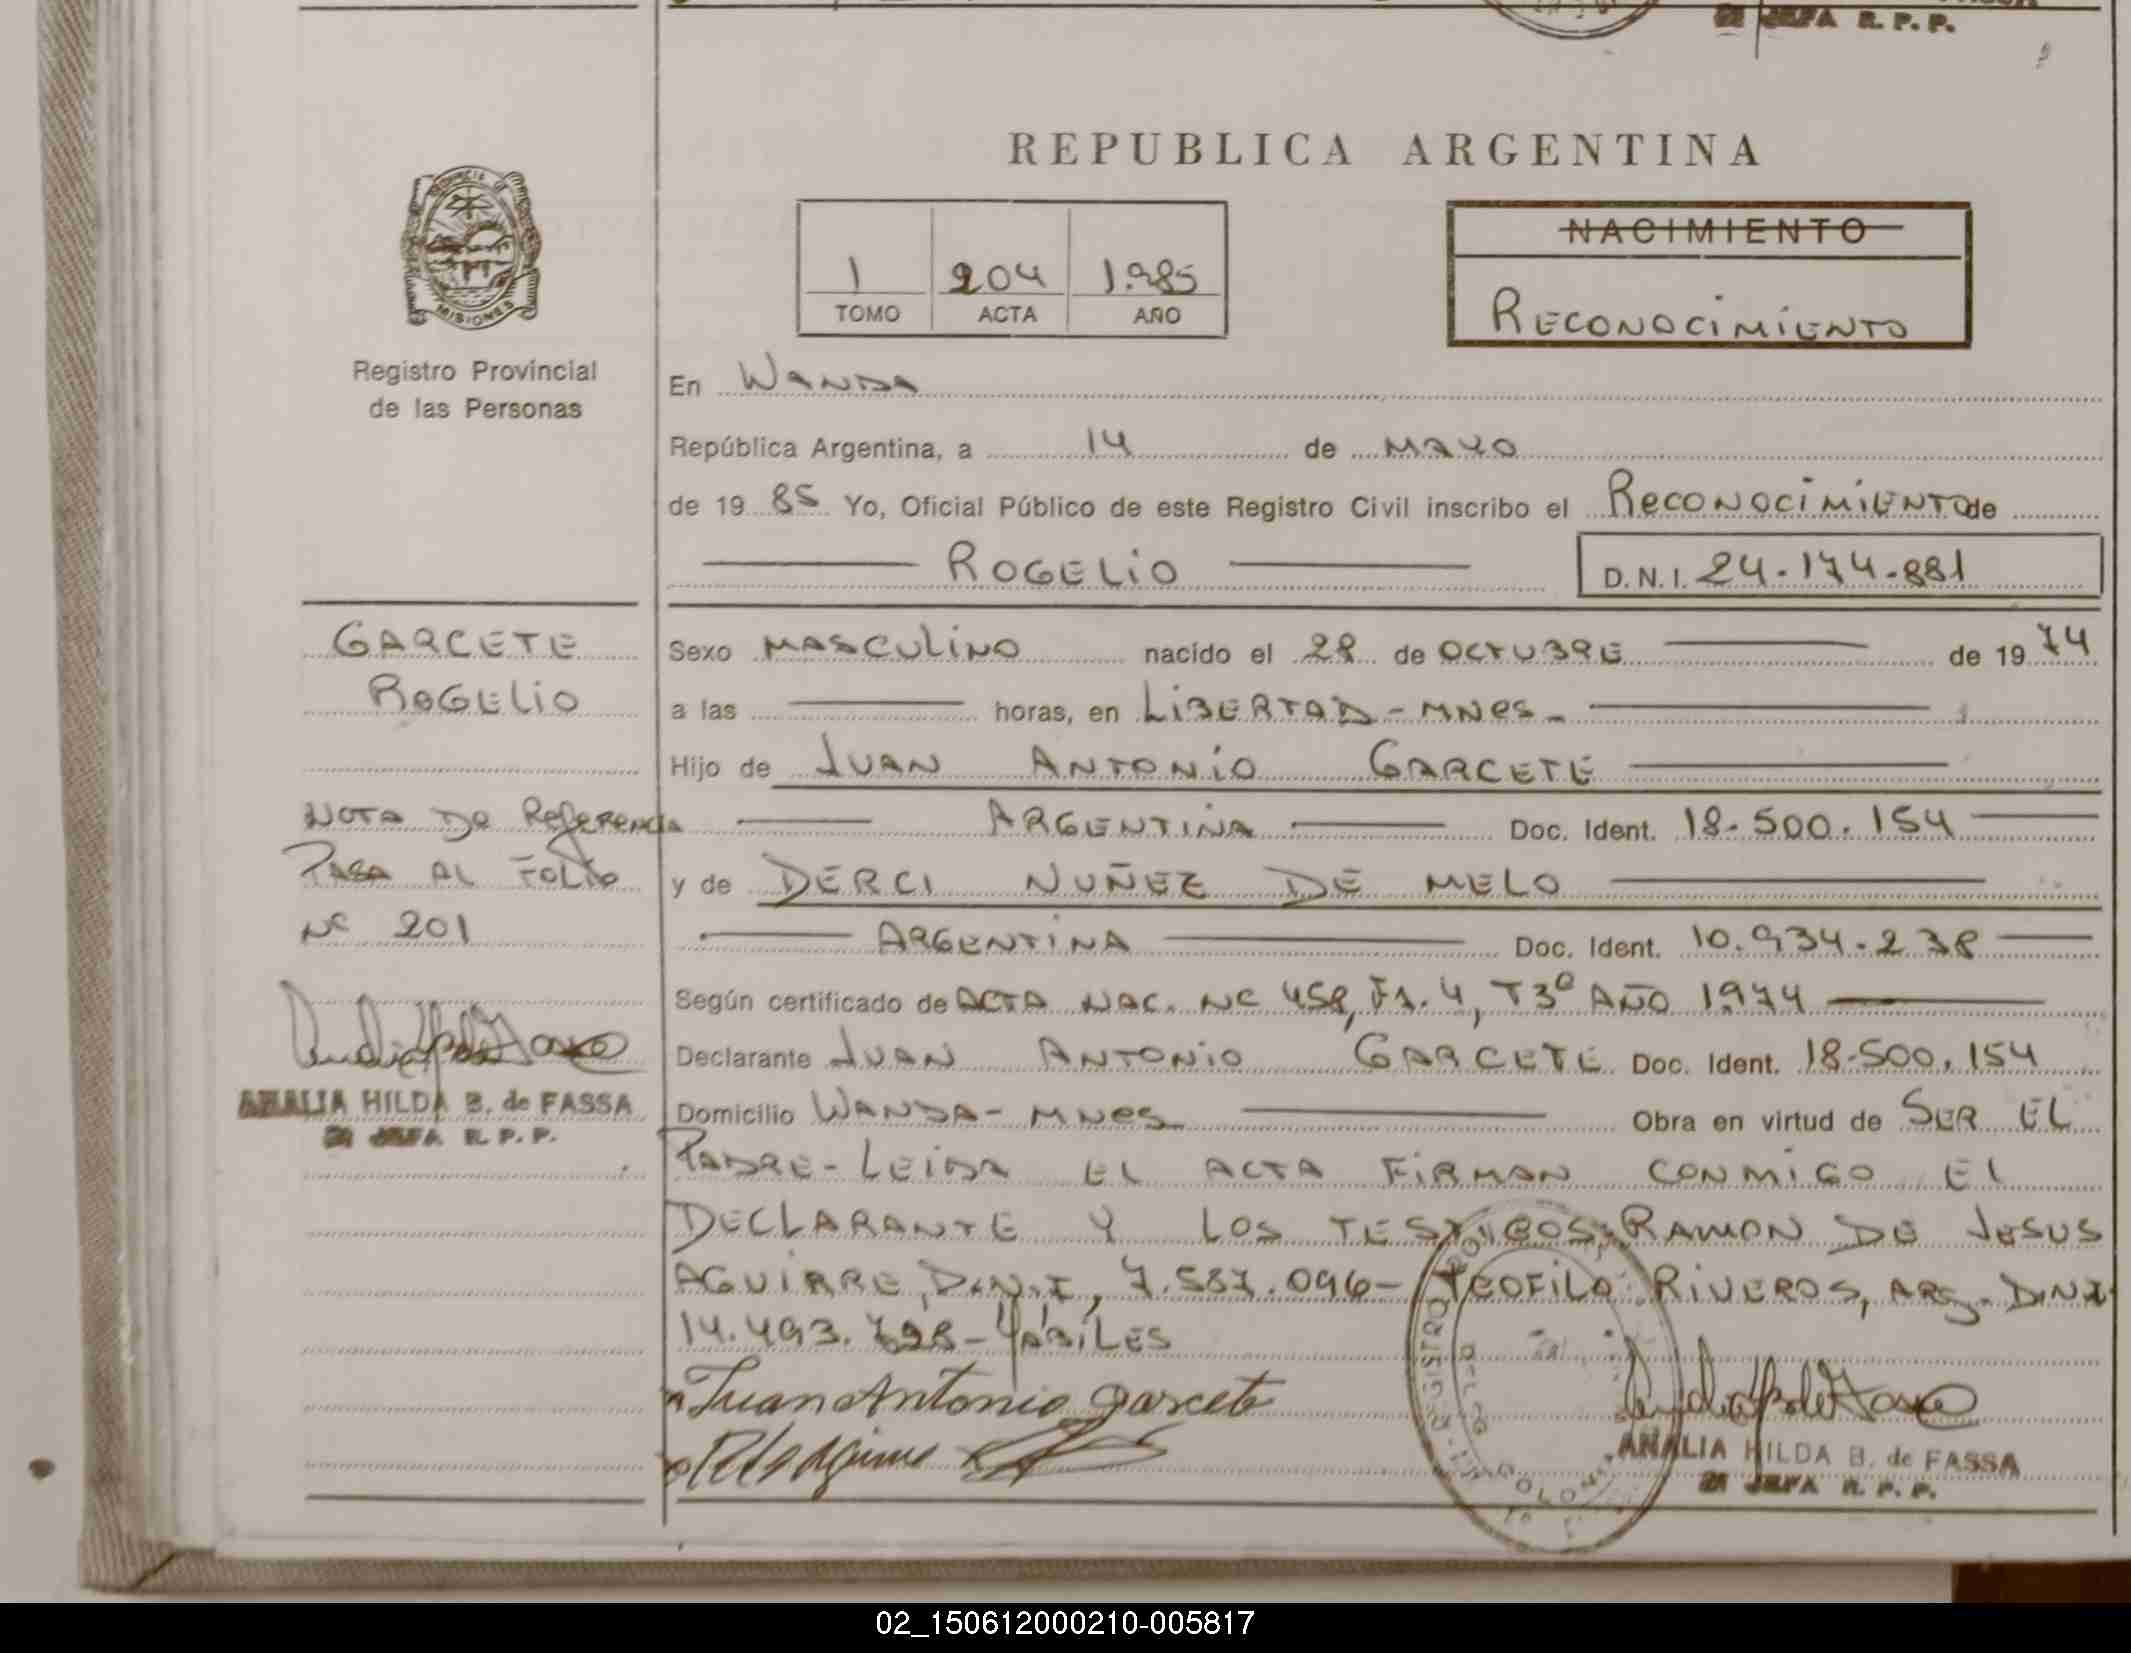 JEFA R. P. P.
REPUBLICA ARGENTINA
PROVINCIA DE
MISIONES
1 204 1.985
TOMO ACTA AÑO
NACIMIENTO
RECONOCIMIENTO
Registro Provincial
de las Personas
En WANDA
República Argentina, a 14 de MAYO
de 19 85 Yo, Oficial Público de este Registro Civil inscribo el RECONOCIMIENTO de
ROGELIO D.N.I. 24.174.881
GARCETE
ROGELIO
NOTA DE Referencia
PASA AL FOLIO
Nº 201
ANALIA HILDA B. de FASSA
JEFA R. P. P.
Sexo MASCULINO nacido el 28 de OCTUBRE de 19 74
a las horas, en LIBERTAD - MNES -
Hijo de JUAN ANTONIO GARCETE
ARGENTINA Doc. Ident. 18.500.154
y de DERCI NUÑEZ DE MELO
ARGENTINA Doc. Ident. 10.934.238
Según certificado de ACTA NAC. Nº 458, Fº. 4, T3º AÑO 1974
Declarante JUAN ANTONIO GARCETE Doc. Ident. 18.500.154
Domicilio WANDA - MNES Obra en virtud de SER EL
PADRE - LEIDA EL ACTA FIRMAN CONMIGO EL
DECLARANTE Y LOS TESTIGOS: RAMON DE JESUS
AGUIRRE, D.N.I, 7.587.096 - TEOFILO RIVEROS, ARG. DNI
14.493.728 - HABILES
Juan Antonio Garcete
ANALIA HILDA B. de FASSA
JEFA R. P. P.
02_150612000210-005817